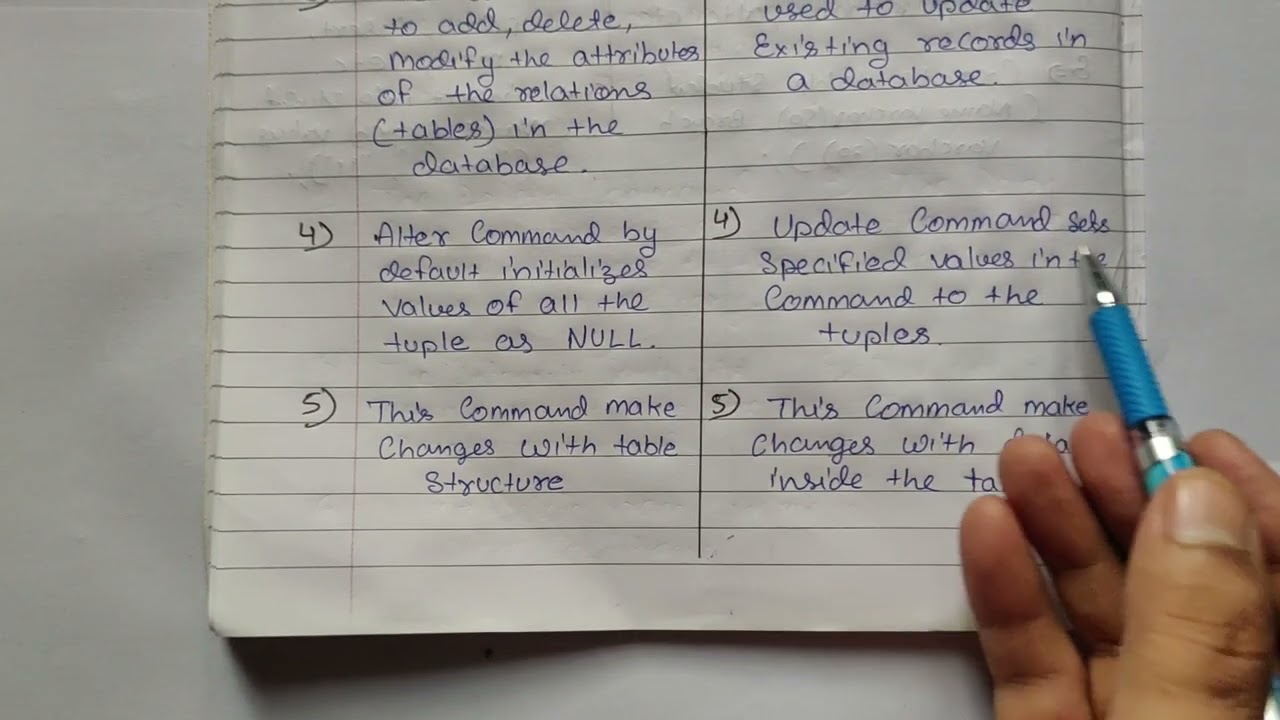 to add, delete,
modify the attributes
of the relations
(tables) in the
database.
4) Alter Command by
default initializes
values of all the
tuple as NULL.
5) This Command make
Changes with table
Structure
used to update
Existing records in
a database.
4) Update Command sets
specified values in the
Command to the
tuples.
5) This Command make
Changes with
inside the